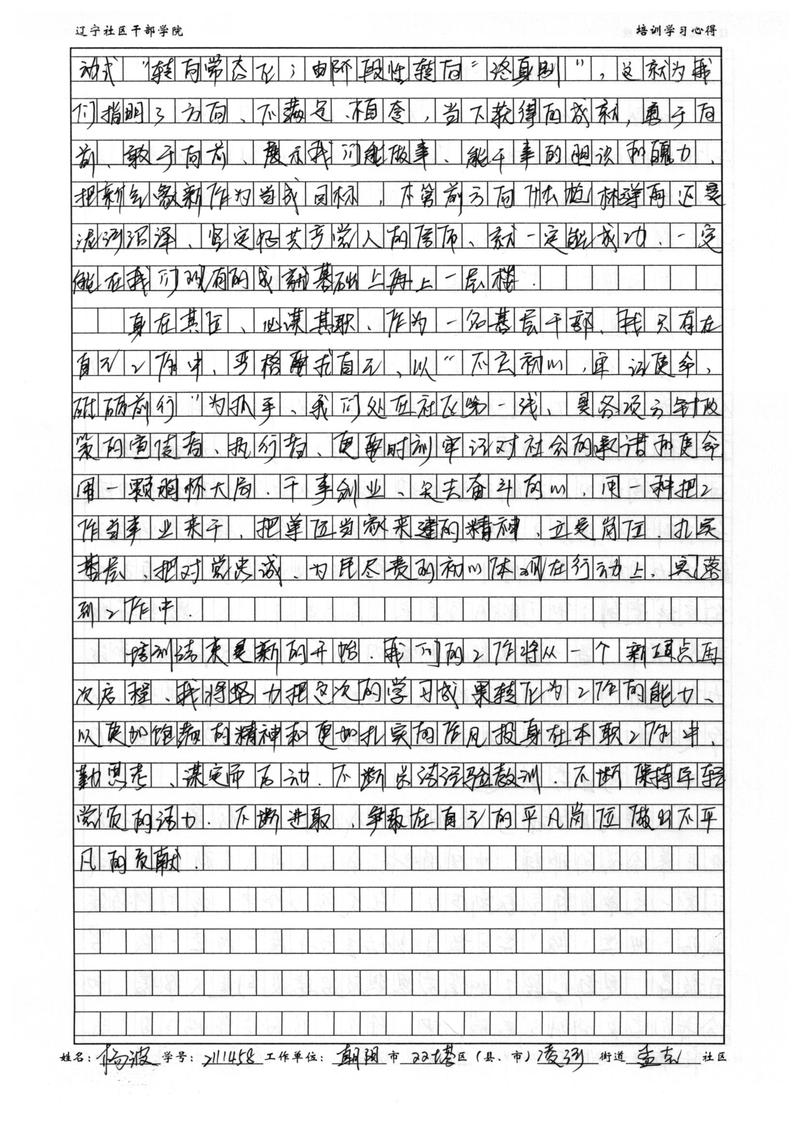 辽宁社区干部学院 培训学习心得
动式"转向常态化;由阶段性转向"终身制",这就为我
们指明了方向、不满足、相奎,当下获得的成就,勇于向
前、敢于向前、展示我们能做事、能干事的胆识和魄力、
把新气象新作为当成目标,不管前方向什么 林弹雨还是
泥泞沼泽、坚定好共产党人的信念、就一定能成功、一定
能在我们现有的成就基础上再上一层楼.
身在其位、必谋其职、作为一名基层干部、我只有在
自己工作中、严格要求自己、以"不忘初心,牢记使命,
砥砺前行"为抓手、我们处在社区第一线、是各项方针政
策的宣传者、执行者、更要时刻牢记对社会的承诺和使命
用一颗胸怀大局.干事创业、矢志奋斗的心,用一种把工
作当事业来干,把单位当家来建的精神、立足岗位、扎实
基层、把对党忠诚、为民尽责的初心体现在行动上、实落
到工作中.
培训结束是新的开始.我们的工作将从一个新起点再
次启程、我将努力把这次的学习成果转化为工作的能力、
以更加饱满的精神和更加扎实的作风投身在本职工作中、
勤思考、谋定而后动.不断总结经验教训.不断保持年轻
党员的活力.不断进取、争取在自己的平凡岗位做出不平
凡的贡献.
姓名:杨波 学号:2111458 工作单位:朝阳 市 双塔 区(县、市)凌河 街道 孟东 社区